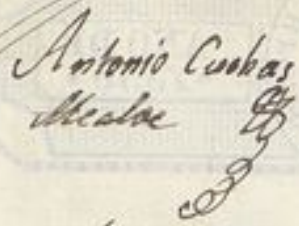 Antonio Cuebas
Alcalde